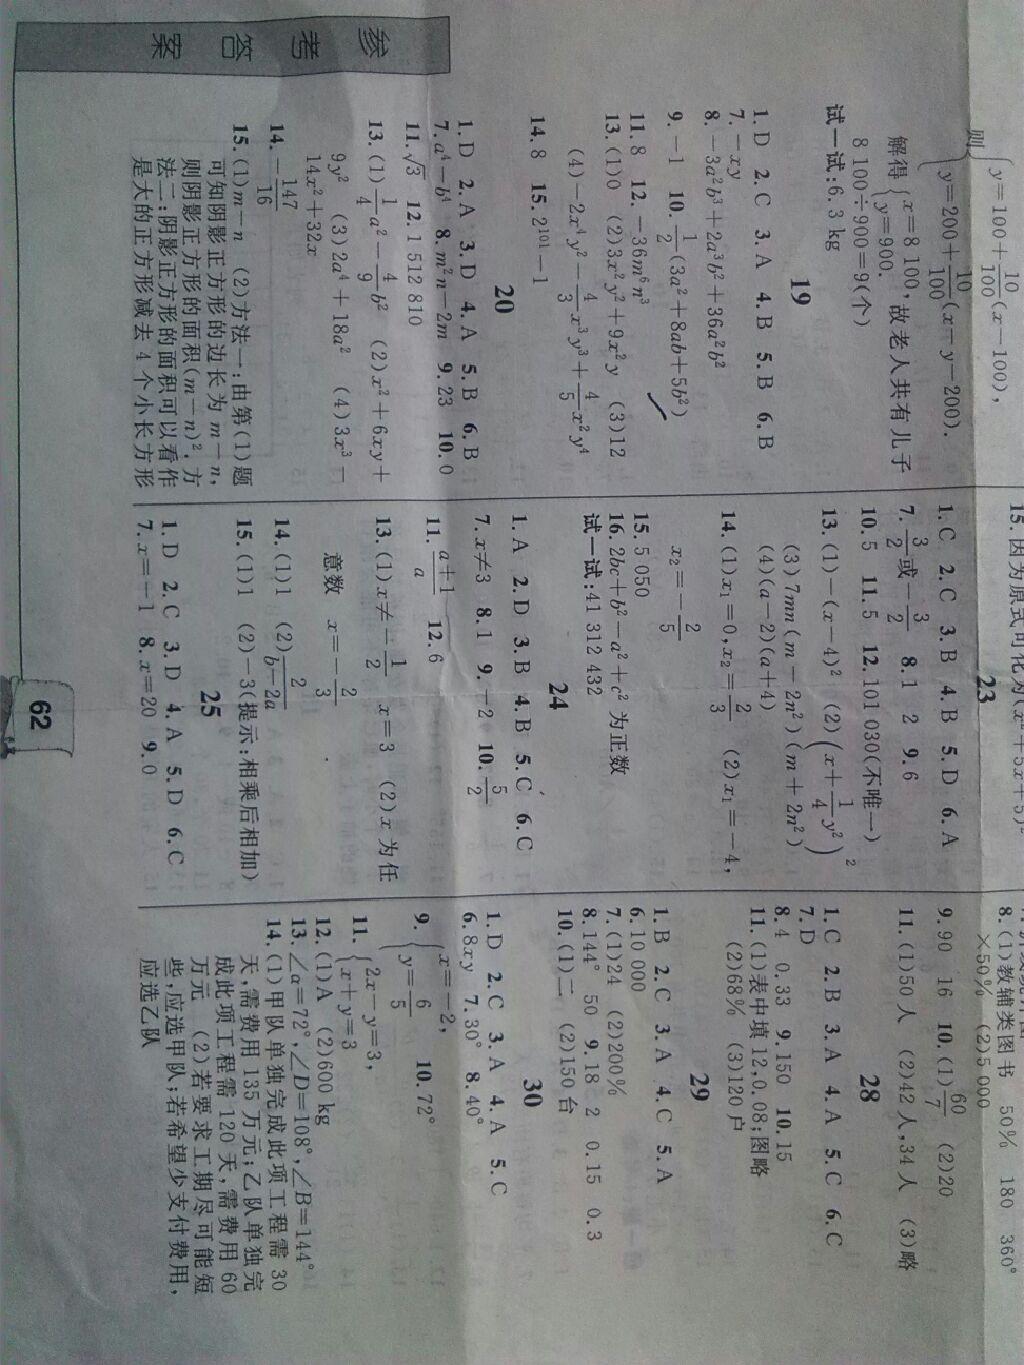 则{y=100+10/100(x-100),
y=200+10/100(x-y-200).
解得{x=8 100,故老人共有儿子
y=900.
8 100÷900=9(个)
试一试:6.3 kg
19
1.D 2.C 3.A 4.B 5.B 6.B
7.-xy
8.-3a²b³+2a³b²+36a²b²
9.-1 10.1/2(3a²+8ab+5b²)
11.8 12.-36m⁶n³
13.(1)0 (2)3x²y²+9x²y (3)12
(4)-2x⁴y²-4/3x³y³+4/5x²y⁴
14.8 15.2¹⁰¹-1
20
1.D 2.A 3.D 4.A 5.B 6.B
7.a⁴-b⁴ 8.m²n-2m 9.23 10.0
11.√3 12.1 512 810
13.(1)1/4a²-4/9b² (2)x²+6xy+
9y² (3)2a⁴+18a² (4)3x³-
14x²+32x
14.-147/16
15.(1)m-n (2)方法一:由第(1)题
可知阴影正方形的边长为m-n,
则阴影正方形的面积(m-n)².方
法二:阴影正方形的面积可以看作
是大的正方形减去4个小长方形
15.因为原式可化为(x²+5x+5)²
23
1.C 2.C 3.B 4.B 5.D 6.A
7.3/2或-3/2 8.1 2 9.6
10.5 11.5 12.101 030(不唯一)
13.(1)-(x-4)² (2)(x+1/4y²)²
(3)7mn(m-2n²)(m+2n²)
(4)(a-2)(a+4)
14.(1)x₁=0,x₂=2/3 (2)x₁=-4,
x₂=-2/5
15.5 050
16.2bc+b²-a²+c²为正数
试一试:41 312 432
24
1.A 2.D 3.B 4.B 5.C 6.C
7.x≠3 8.1 9.-2 10.5/2
11.a+1/a 12.6
13.(1)x≠-1/2 x=3 (2)x为任
意数 x=-2/3
14.(1)1 (2)2/b-2a
15.(1)1 (2)-3(提示:相乘后相加)
25
1.D 2.C 3.D 4.A 5.D 6.C
7.x=-1 8.x=20 9.0
8.(1)教辅类图书 50% 180 360°
×50% (2)5 000
9.90 16 10.(1)60/7 (2)20
11.(1)50人 (2)42人,34人 (3)略
28
1.C 2.B 3.A 4.A 5.C 6.C
7.D
8.4 0.33 9.150 10.15
11.(1)表中填12,0.08;图略
(2)68% (3)120户
29
1.B 2.C 3.A 4.C 5.A
6.10 000
7.(1)24 (2)200%
8.144° 50 9.18 2 0.15 0.3
10.(1)二 (2)150台
30
1.D 2.C 3.A 4.A 5.C
6.8xy 7.30° 8.40°
9.{x=-2,
y=6/5 10.72°
11.{2x-y=3,
x+y=3
12.(1)A (2)600 kg
13.∠α=72°,∠D=108°,∠B=144°
14.(1)甲队单独完成此项工程需30
天,需费用135万元;乙队单独完
成此项工程需120天,需费用60
万元 (2)若要求工期尽可能短
些,应选甲队;若希望少支付费用,
应选乙队
参考答案
62